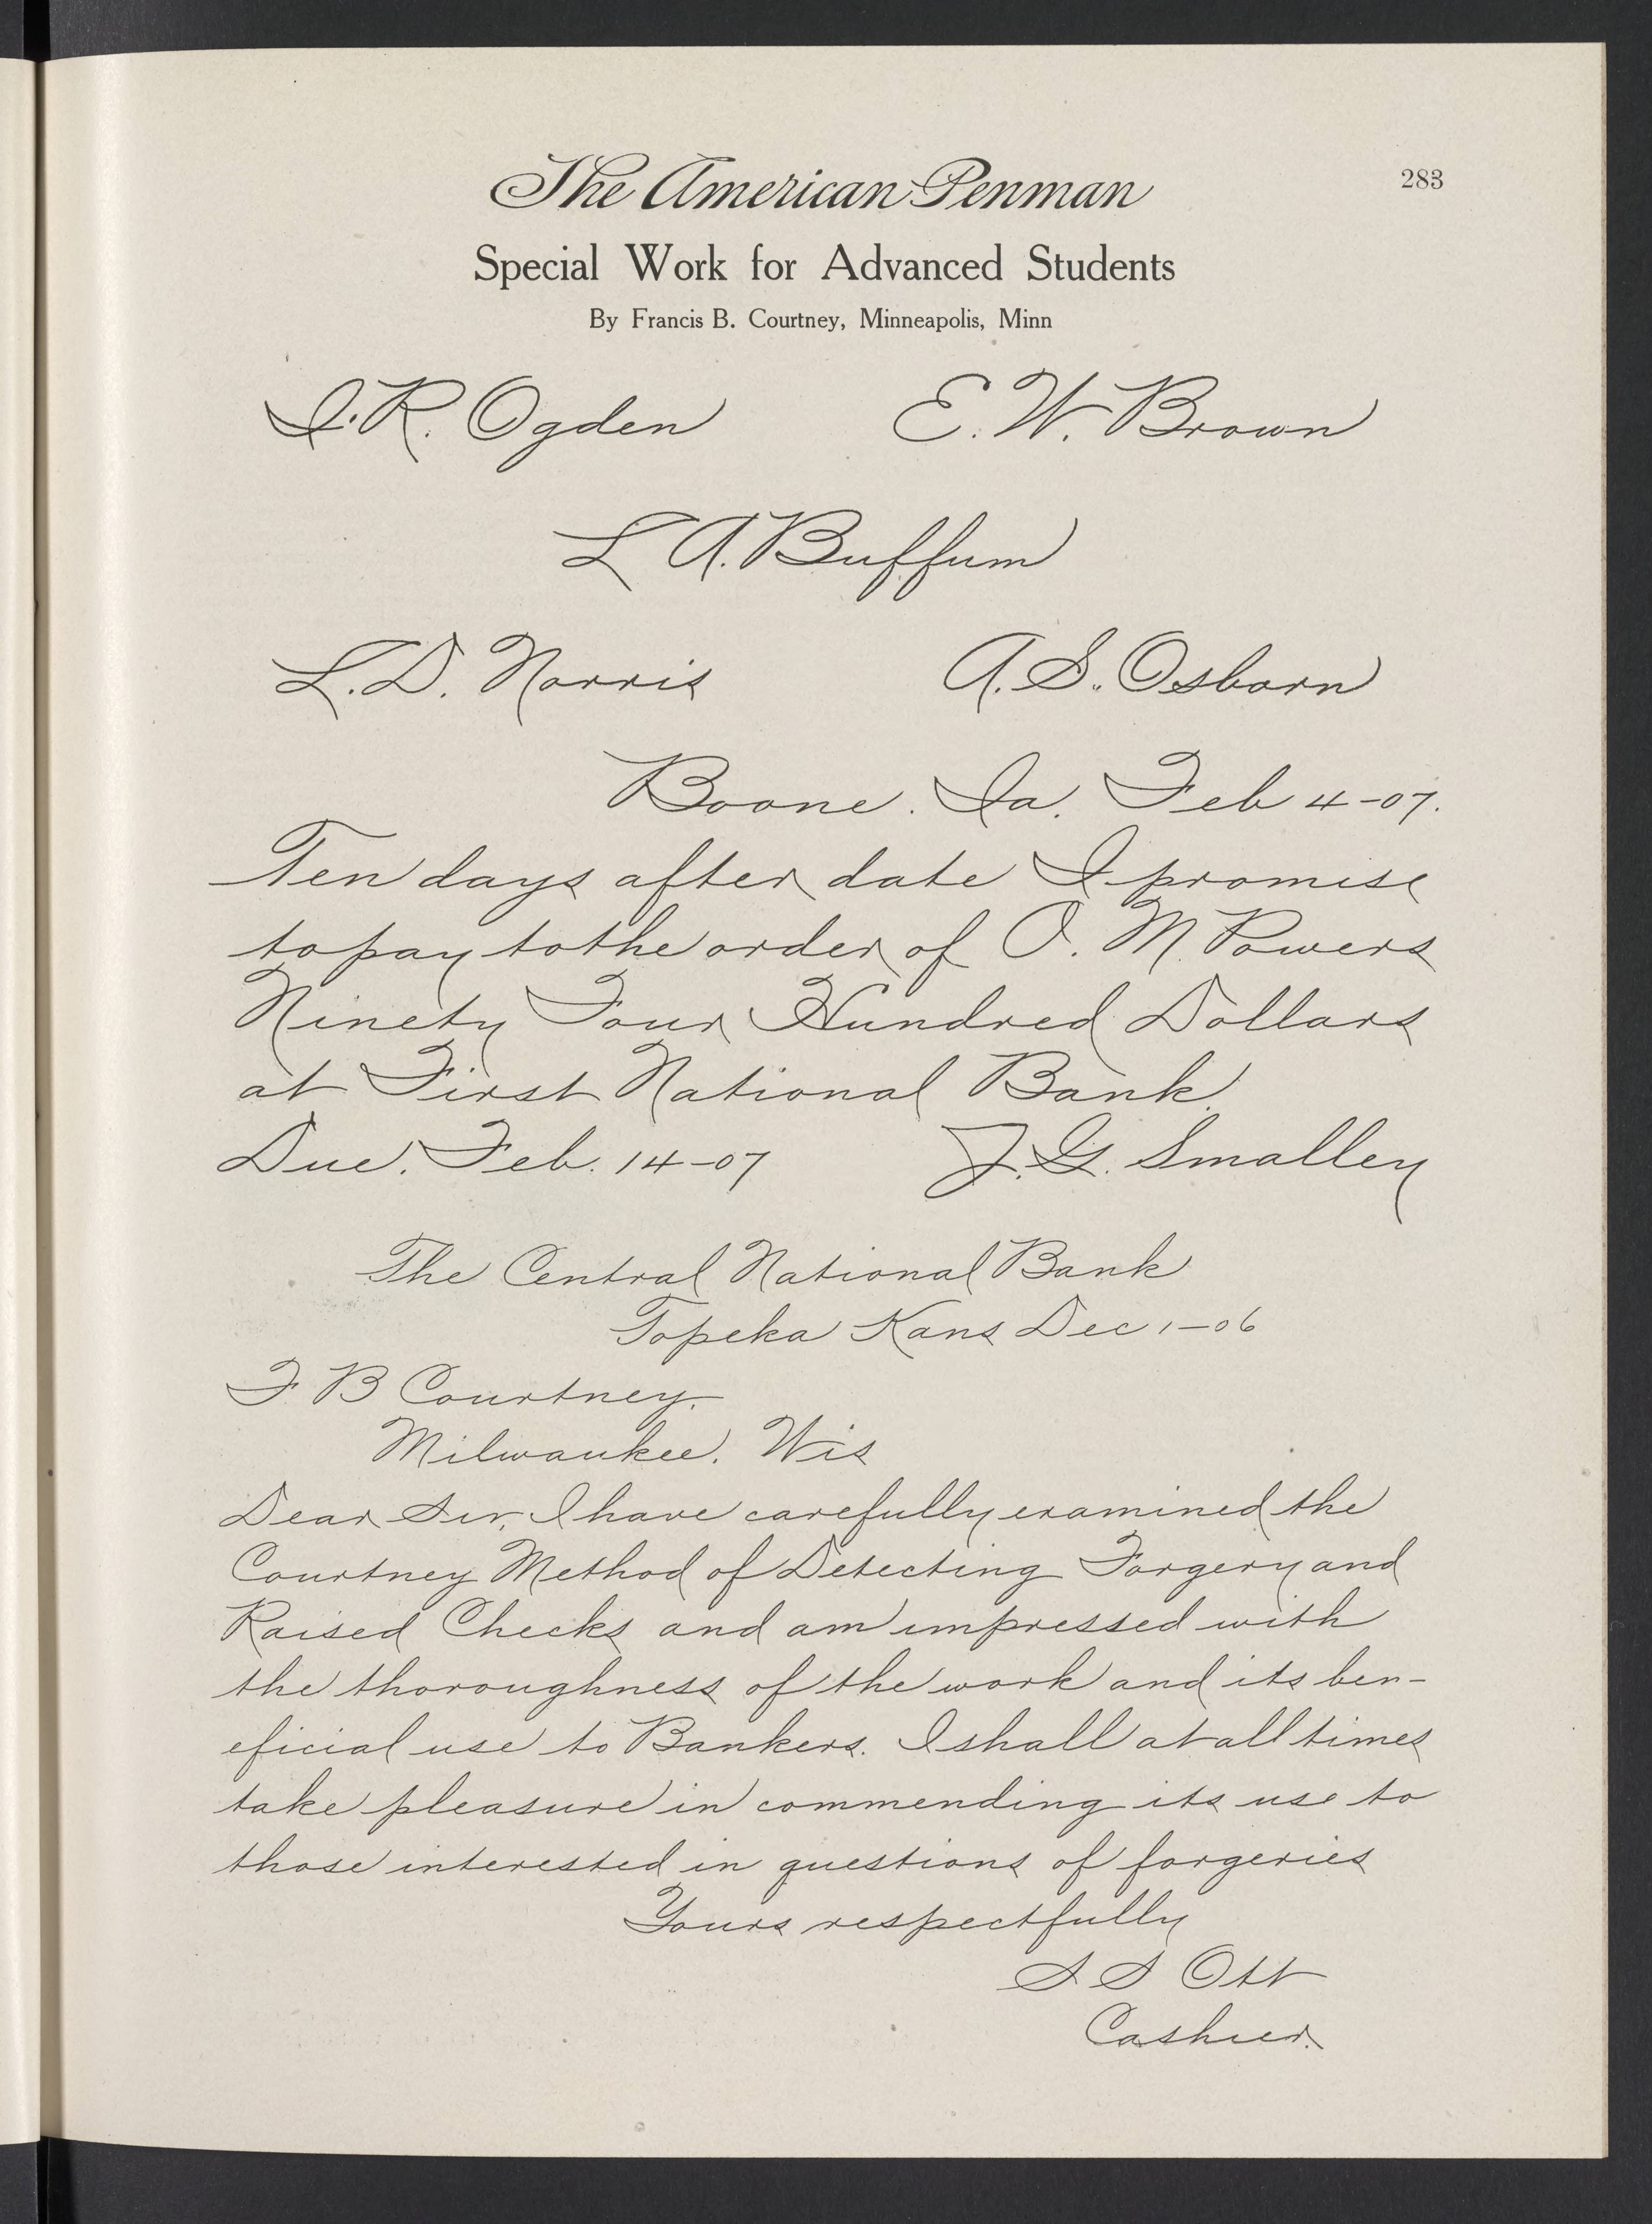 The American Penman
283
Special Work for Advanced Students
By Francis B. Courtney, Minneapolis, Minn
I. R. Ogden
E. W. Brown
L A. Buffum
L. D. Norris
A. S. Osborn
Boone. Ia. Feb 4-07.
Ten days after date I promise
to pay to the order of O. M. Powers
Ninety Four Hundred Dollars
at First National Bank.
Due. Feb. 14-07
J. G. Smalley
The Central National Bank
Topeka Kans Dec 1-06
F B Courtney.
Milwaukee. Wis
Dear Sir, I have carefully examined the
Courtney Method of Detecting Forgery and
Raised Checks and am impressed with
the thoroughness of the work and its ben-
eficial use to Bankers. I shall at all times
take pleasure in commending its use to
those interested in questions of forgeries
Yours respectfully
S S Ott
Cashier.